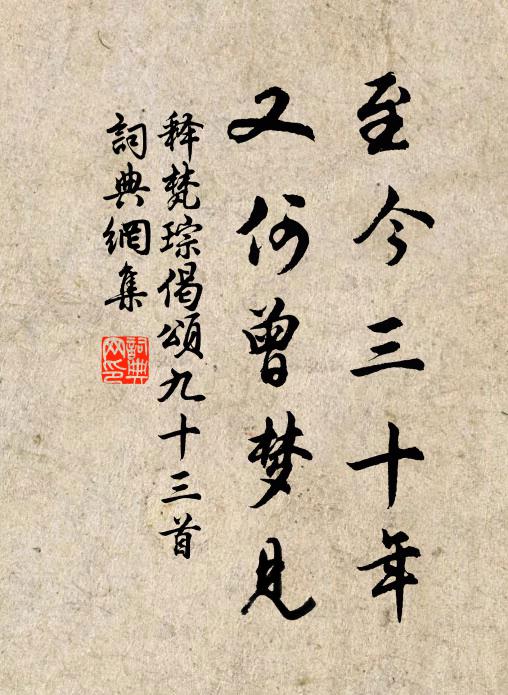 至今三十年
又何曾梦见
释梵琮偈颂九十三首
詞典網集
詞典网印